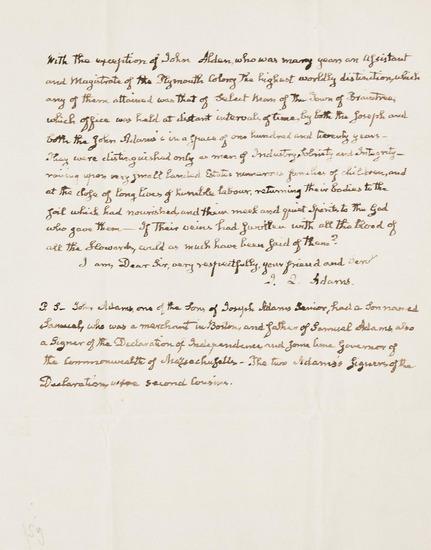 With the exception of John Alden, who was many years an Assistant
and Magistrate of the Plymouth Colony the highest worldly distinction, which
any of them attained was that of Select Man of the Town of Braintree,
which office was held at distant intervals of time, by both the Joseph and
both the John Adams's in a space of one hundred and twenty years—
They were distinguished only as men of Industry, Sobriety and Integrity—
raising upon very small landed Estates numerous families of children, and
at the close of long lives of humble labour, returning their bodies to the
soil which had nourished, and their meek and quiet Spirits to the God
who gave them— If their veins had swollen with all the blood of
all the Howards, could as much have been said of them?
I am, Dear Sir, very respectfully, your friend and
J. Q. Adams.
P. S— John Adams, one of the Sons of Joseph Adams Senior, had a Son named
Samuel, who was a merchant in Boston, and father of Samuel Adams also
a Signer of the Declaration of Independence and some time Governor of
the Commonwealth of Massachusetts— The two Adams's Signers of the
Declaration, were second cousins.